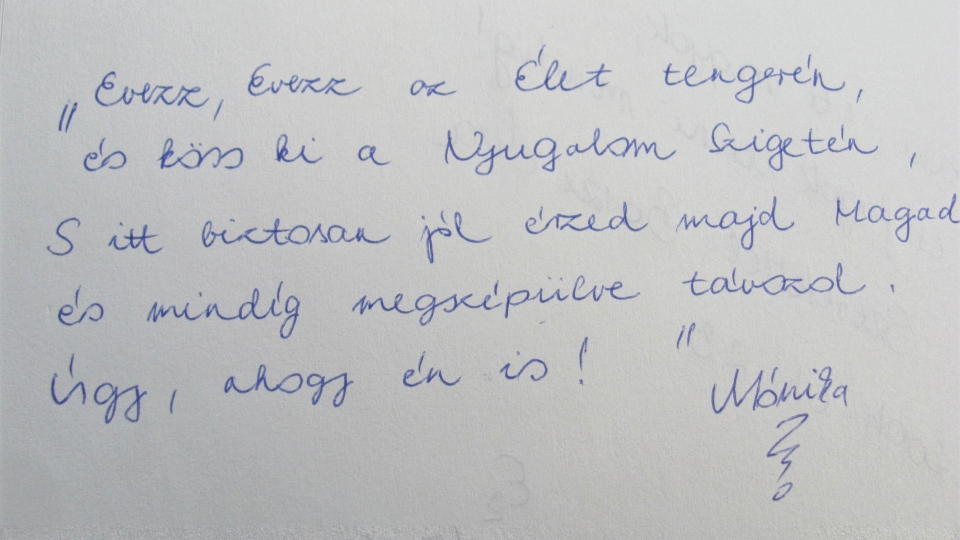 „Evezz, Evezz az Élet tengerén,
és köss ki a Nyugalom Szigetén,
S itt biztosan jól érzed majd Magad
és mindíg megszépülve távozol.
Úgy, ahogy én is! "
Mónika